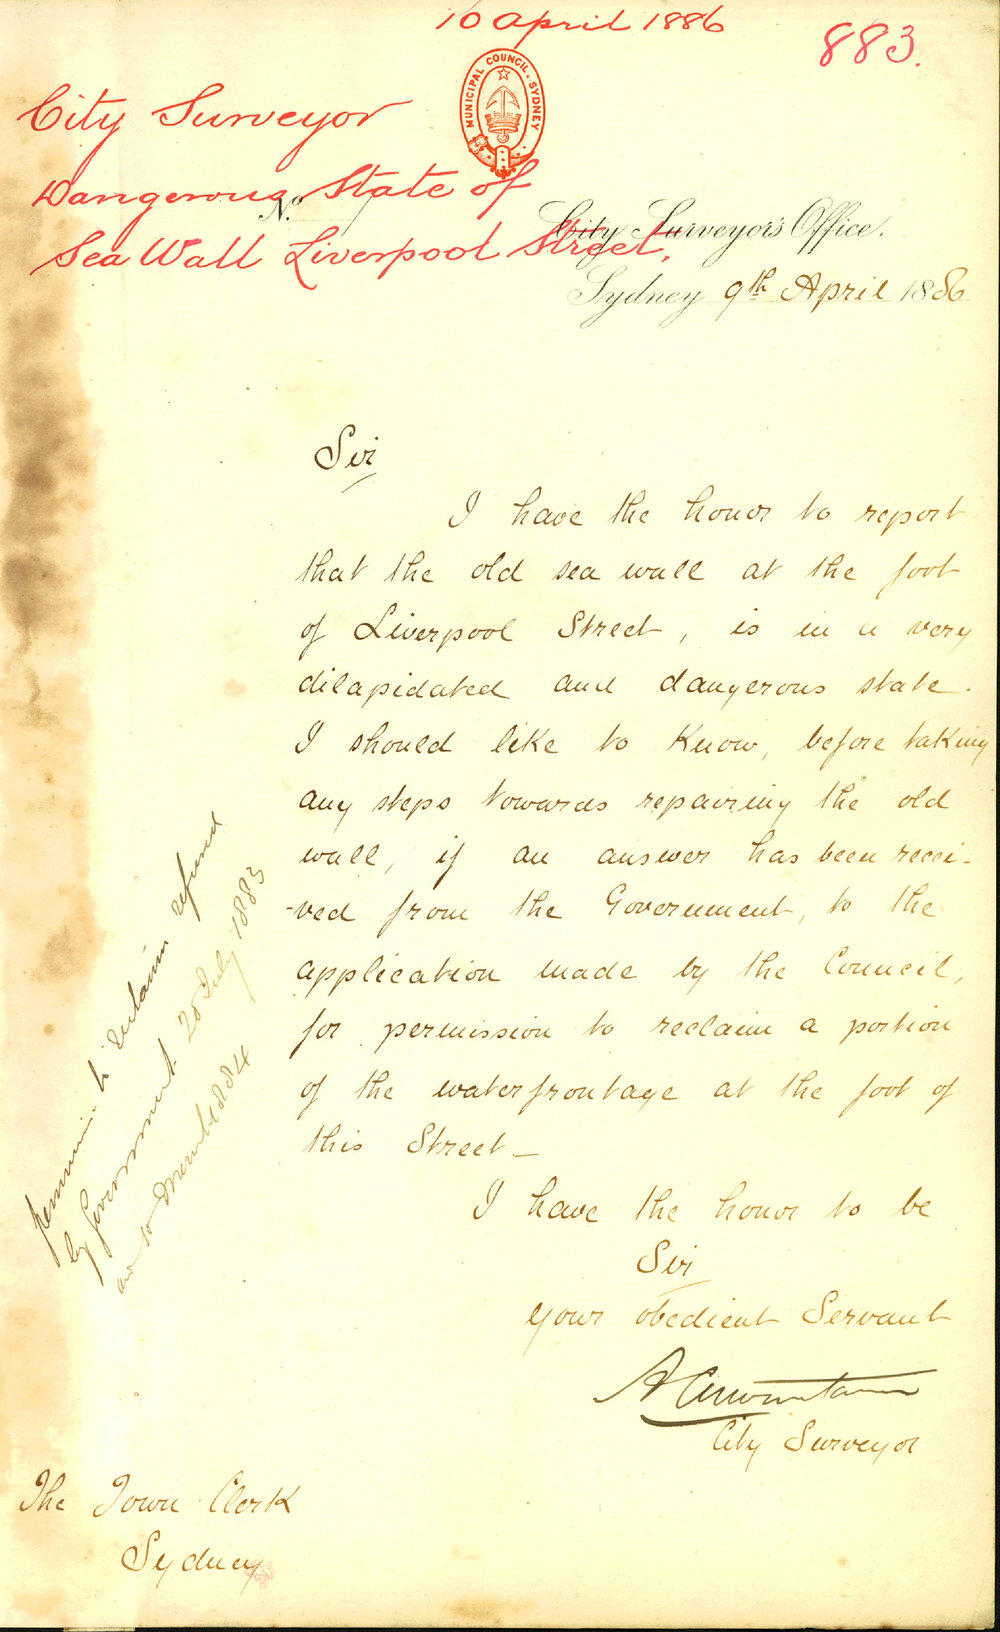 10 April 1886
883.
MUNICIPAL COUNCIL. SYDNEY
City Surveyor
Dangerous State of
Sea Wall Liverpool Street.
No.
City Surveyor's Office.
Sydney 9th April 1886
Sir
I have the honor to report
that the old sea wall at the foot
of Liverpool Street, is in a very
dilapidated and dangerous state.
I should like to know, before taking
any steps towards repairing the old
wall, if an answer has been recei-
-ved from the Government, to the
application made by the Council,
for permission to reclaim a portion
of the waterfrontage at the foot of
this Street —
I have the honor to be
Sir
your obedient Servant
City Surveyor
The Town Clerk
Sydney
to reclaim refused
by Government 20 July 1883